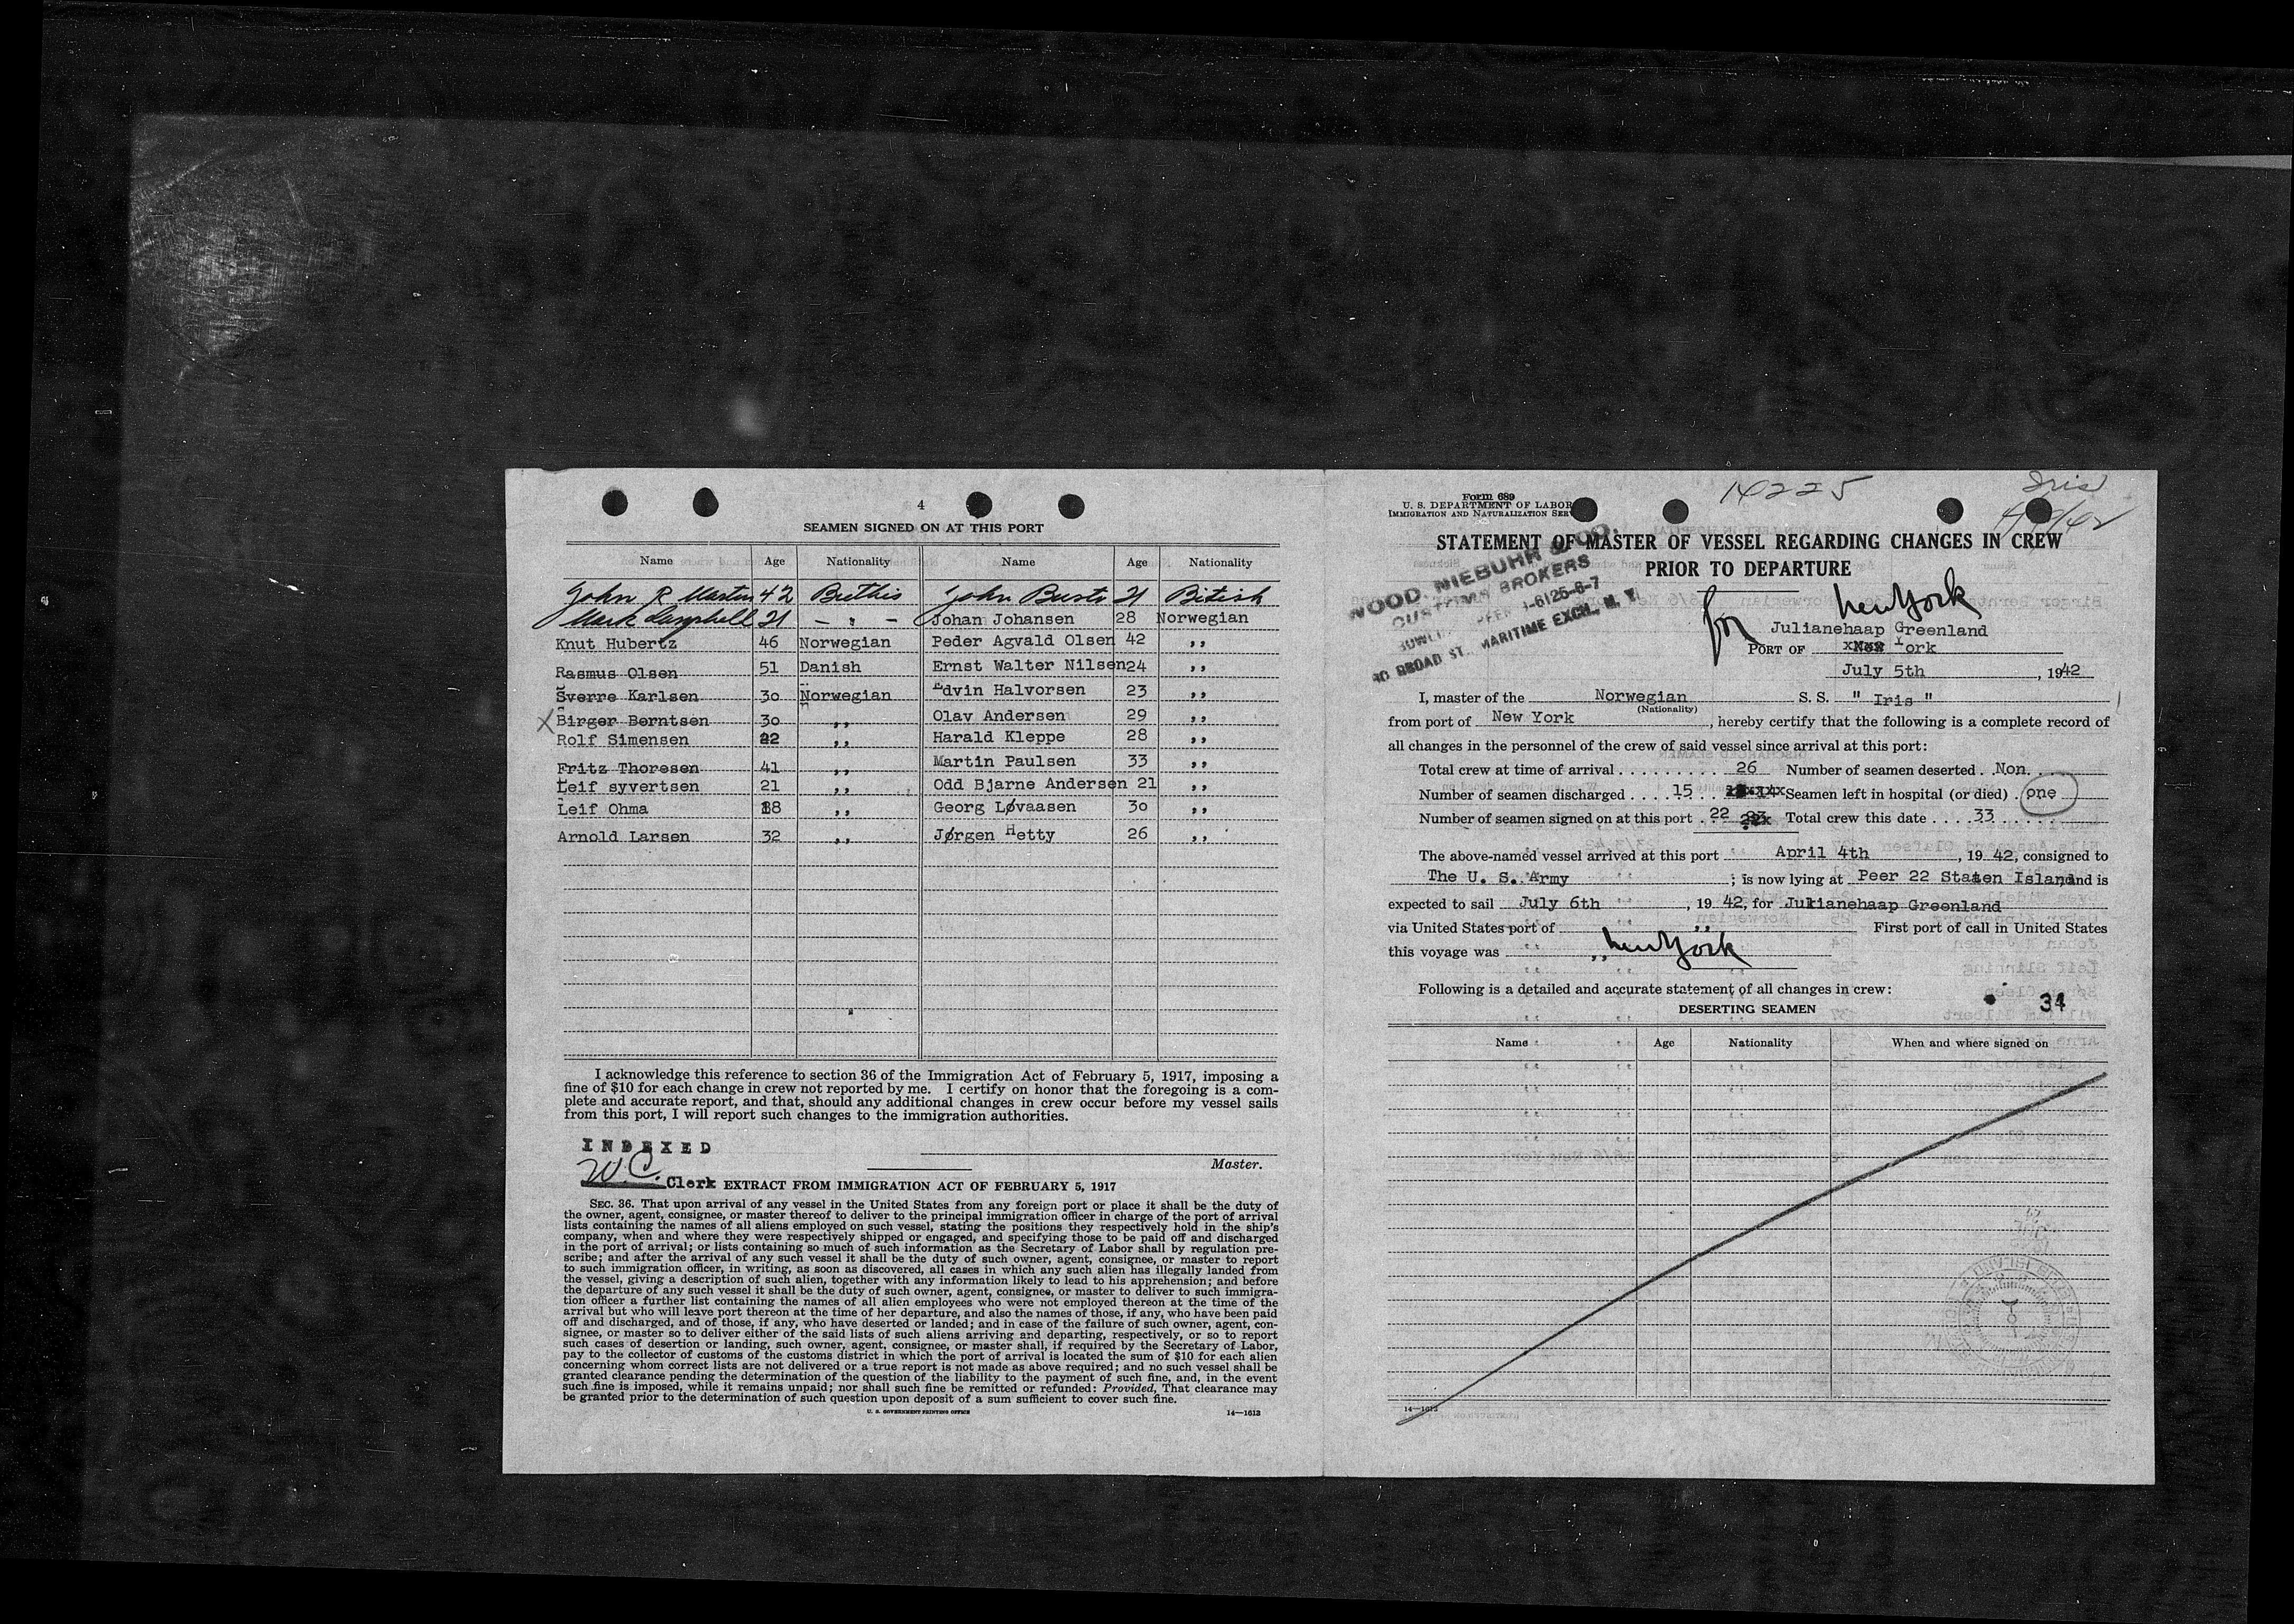 4
SEAMEN SIGNED ON AT THIS PORT
Name Age Nationality Name Age Nationality
John R Martin 42 Brithis John Busts 21 Bitish
Mark Campbell 21 — " — Johan Johansen 28 Norwegian
Knut Hubertz 46 Norwegian Peder Agvald Olsen 42 ,,
Rasmus Olsen 51 Danish Ernst Walter Nilsen 24 ,,
Sverre Karlsen 30 Norwegian Edvin Halvorsen 23 ,,
X Birger Berntsen 30 ,, Olav Andersen 29 ,,
Rolf Simensen 22 ,, Harald Kleppe 28 ,,
Fritz Thoresen 41 ,, Martin Paulsen 33 ,,
Leif syvertsen 21 ,, Odd Bjarne Andersen 21 ,,
Leif Ohma 18 ,, Georg Løvaasen 30 ,,
Arnold Larsen 32 ,, Jørgen Hetty 26 ,,
I acknowledge this reference to section 36 of the Immigration Act of February 5, 1917, imposing a
fine of $10 for each change in crew not reported by me. I certify on honor that the foregoing is a com-
plete and accurate report, and that, should any additional changes in crew occur before my vessel sails
from this port, I will report such changes to the immigration authorities.
INDEXED
Master.
W.C. Clerk EXTRACT FROM IMMIGRATION ACT OF FEBRUARY 5, 1917
SEC. 36. That upon arrival of any vessel in the United States from any foreign port or place it shall be the duty of
the owner, agent, consignee, or master thereof to deliver to the principal immigration officer in charge of the port of arrival
lists containing the names of all aliens employed on such vessel, stating the positions they respectively hold in the ship's
company, when and where they were respectively shipped or engaged, and specifying those to be paid off and discharged
in the port of arrival; or lists containing so much of such information as the Secretary of Labor shall by regulation pre-
scribe; and after the arrival of any such vessel it shall be the duty of such owner, agent, consignee, or master to report
to such immigration officer, in writing, as soon as discovered, all cases in which any such alien has illegally landed from
the vessel, giving a description of such alien, together with any information likely to lead to his apprehension; and before
the departure of any such vessel it shall be the duty of such owner, agent, consignee, or master to deliver to such immigra-
tion officer a further list containing the names of all alien employees who were not employed thereon at the time of the
arrival but who will leave port thereon at the time of her departure, and also the names of those, if any, who have been paid
off and discharged, and of those, if any, who have deserted or landed; and in case of the failure of such owner, agent, con-
signee, or master so to deliver either of the said lists of such aliens arriving and departing, respectively, or so to report
such cases of desertion or landing, such owner, agent, consignee, or master shall, if required by the Secretary of Labor,
pay to the collector of customs of the customs district in which the port of arrival is located the sum of $10 for each alien
concerning whom correct lists are not delivered or a true report is not made as above required; and no such vessel shall be
granted clearance pending the determination of the question of the liability to the payment of such fine, and, in the event
such fine is imposed, while it remains unpaid; nor shall such fine be remitted or refunded: Provided, That clearance may
be granted prior to the determination of such question upon deposit of a sum sufficient to cover such fine.
U. S. GOVERNMENT PRINTING OFFICE 14—1613
Form 689
U. S. DEPARTMENT OF LABOR
IMMIGRATION AND NATURALIZATION SER
14225
Iris
4/4/42
STATEMENT OF MASTER OF VESSEL REGARDING CHANGES IN CREW
PRIOR TO DEPARTURE
WOOD, NIEBUHR & CO.
CUSTOMS BROKERS
-6126-6-7
80 BROAD ST. MARITIME EXCH., N. Y.
for New York
Julianehaap Greenland
PORT OF xNew York
July 5th, 1942
I, master of the Norwegian S. S. " Iris "
(Nationality)
from port of New York, hereby certify that the following is a complete record of
all changes in the personnel of the crew of said vessel since arrival at this port:
Total crew at time of arrival 26 Number of seamen deserted Non.
Number of seamen discharged 15 Seamen left in hospital (or died) one
Number of seamen signed on at this port 22 Total crew this date 33
The above-named vessel arrived at this port April 4th, 19 42, consigned to
The U. S. Army; is now lying at Peer 22 Staten Island and is
expected to sail July 6th, 19 42, for Julianehaap Greenland
via United States port of ,, First port of call in United States
this voyage was ,, New York
Following is a detailed and accurate statement of all changes in crew:
34
DESERTING SEAMEN
Name Age Nationality When and where signed on
14—1613